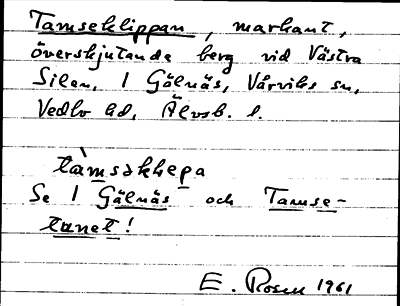 Tamseklippan, markant,
överskjutande berg vid Västra
Silen, 1 Gälnäs, Vårviks sn,
Vedbo hd, Älvsb. l.
tàmsəkhepa
Se 1 Gälnäs och Tamse-
tanet!
E. Rosen 1961